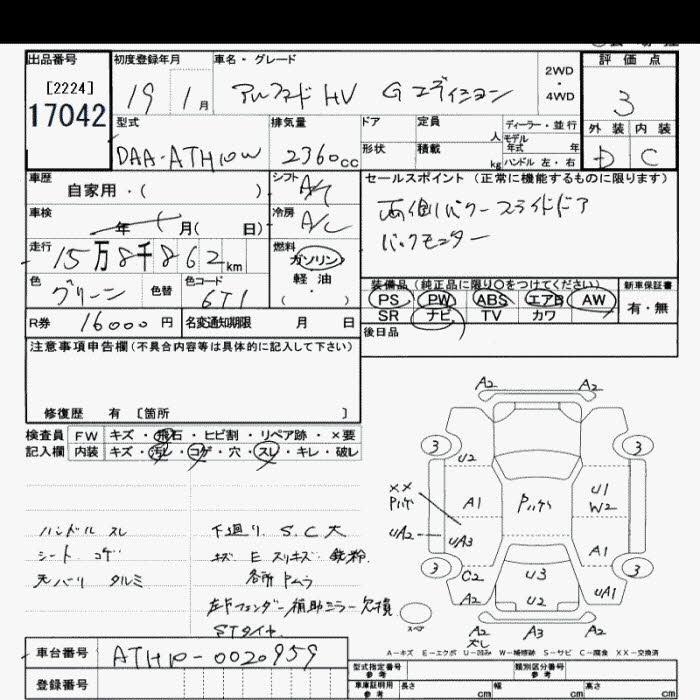 出品番号 初度登録年月 車名・グレード 評価点
[2224] 19 1月 アルファード HV Gエディション 2WD・4WD 3
17042
型式 排気量 ドア 定員 人 ディーラー・並行 外装 内装
モデル年式 年
DAA-ATH10W 2360cc 形状 積載 kg ハンドル 左・右 D C
車歴 自家用・( ) シフト A/ セールスポイント(正常に機能するものに限ります)
車検 年 月( 日) 冷房 A/C 両側パワースライドドア
バックモニター
走行 15万8千862km 燃料 ガソリン
軽油
・
( )
色 グリーン 色替 色コード 6T1 装備品(純正品に限り〇をつけてください) 新車保証書
PS PW ABS エアB AW 有・無
R券 16000円 名変通知期限 月 日 SR ナビ TV カワ
注意事項申告欄(不具合内容等は具体的に記入して下さい) 後日品
修復歴 有 [箇所 ]
検査員 FW キズ・飛石・ヒビ割・リペア跡・×要
記入欄 内装 キズ・汚レ・コゲ・穴・スレ・キレ・破レ
ハンドル スレ
シート コゲ
天バリ タルミ
下廻り S.C大
キズ E スリキズ 鉄粉
各所 Pムラ
左Fフェンダー補助ミラー欠損
STタイヤ
A2 A2
3 3
U2
XX
Pハゲ A1 Pハゲ U1
W2
UA2 UA3 A1
3 C2 U3 3
A2 U2 UA1
スペア A2 A3 A2
A−キズ E−エクボ U−凹み W−補修跡 S−サビ C−腐食 XX−交換済
車台番号 ATH10-0020959
登録番号
型式指定番号 参考 類別区分番号 参考
車庫証明用 参考 長さ cm 幅 cm 高さ cm